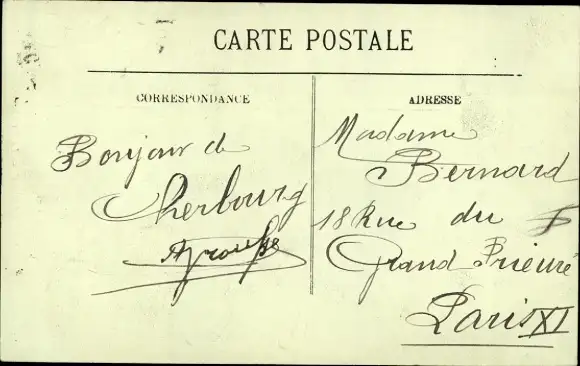 CARTE POSTALE
CORRESPONDANCE
Bonjour de
Cherbourg
ADRESSE
Madame
Bernard
18 Rue du
Grand Prieuré
Paris XI